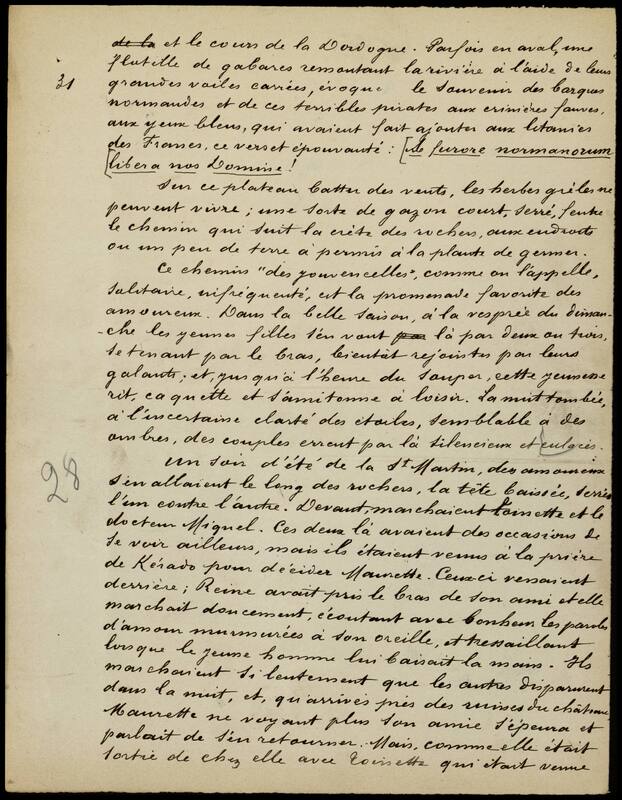 de la et le cours de la Dordogne. Parfois en aval, une
flotille de gabares remontant la rivière à l'aide de leurs
31
grandes voiles carrées, évoque le souvenir des barques
normandes et de ces terribles pirates aux crinières fauves,
aux yeux bleus, qui avaient fait ajouter aux litanies
des Franses, ce verset épouvanté : [de furore normanorum
[libera nos Domine !
Sur ce plateau battu des vents, les herbes grêles ne
peuvent vivre ; une sorte de gazon court, serré, feutre
le chemin qui suit la crête des rochers, aux endroits
où un peu de terre à permis à la plante de germer.
Ce chemin "des jouvencelles", comme on l'appelle,
solitaire, infréquenté, est la promenade favorite des
amoureux. Dans la belle saison, à la vesprée du diman-
-che les jeunes filles s'en vont par là par deux ou trois,
se tenant par le bras, bientôt rejointes par leurs
galants ; et, jusqu'à l'heure du souper, cette jeunesse
rit, caquette et s'amitonne à loisir. La nuit tombée,
à l'incertaine clarté des étoiles, semblable à des
ombres, des couples errent par là silencieux et enlacés.
28
Un soir d'été de la St Martin, des amoureux
s'en allaient le long des rochers, la tête baissée, serrés
l'un contre l'autre. Devant, marchaient Toinette et le
docteur Miquel. Ces deux là avaient des occasions de
se voir ailleurs, mais ils étaient venus à la prière
de Kérado pour décider Maurette. Ceux-ci venaient
derrière ; Reine avait pris le bras de son ami et elle
marchait doucement, écoutant avec bonheur les paroles
d'amour murmurées à son oreille, et tressaillant
lorsque le jeune homme lui baisait la main. Ils
marchaient si lentement que les autres disparurent
dans la nuit, et, qu'arrivés près des ruines du château,
Maurette ne voyant plus son amie s'épeura et
parlait de s'en retourner. Mais, comme elle était
sortie de chez elle avec Toinette qui était venue